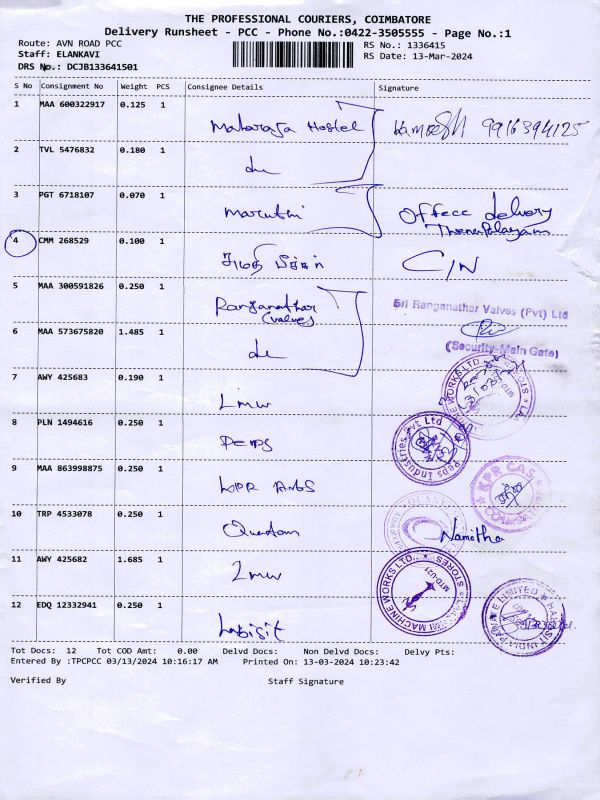 THE PROFESSIONAL COURIERS, COIMBATORE
Delivery Runsheet - PCC - Phone No.:0422-3505555 - Page No.:1
Route: AVN ROAD PCC
RS No.: 1336415
Staff: ELANKAVI
RS Date: 13-Mar-2024
DRS No.: DCJB133641501
S No Consignment No Weight PCS Consignee Details Signature
1 MAA 600322917 0.125 1
Maharaja Hostel 9916394125
2 TVL 5476832 0.180 1
do
3 PGT 6718107 0.070 1
Maruthi Offece delivery
4 CMM 268529 0.100 1
C/N
5 MAA 300591826 0.250 1
Ranganathar
(valves)
Sri Ranganathar Valves (Pvt) Ltd
6 MAA 573675820 1.485 1
do
(Security-Main Gate)
7 AWY 425683 0.190 1
Lmw
8 PLN 1494616 0.250 1
Peps
Peps Industries Pvt Ltd
9 MAA 863998875 0.250 1
KPR
KPR CAS
10 TRP 4533078 0.250 1
Quantom Namitha
11 AWY 425682 1.685 1
Lmw
MACHINE WORKS LTD., STORES
MTD-U21
12 EDQ 12332941 0.250 1
Habisit
Tot Docs: 12 Tot COD Amt: 0.00 Delvd Docs: Non Delvd Docs: Delvy Pts:
Entered By :TPCPCC 03/13/2024 10:16:17 AM Printed On: 13-03-2024 10:23:42
Verified By Staff Signature